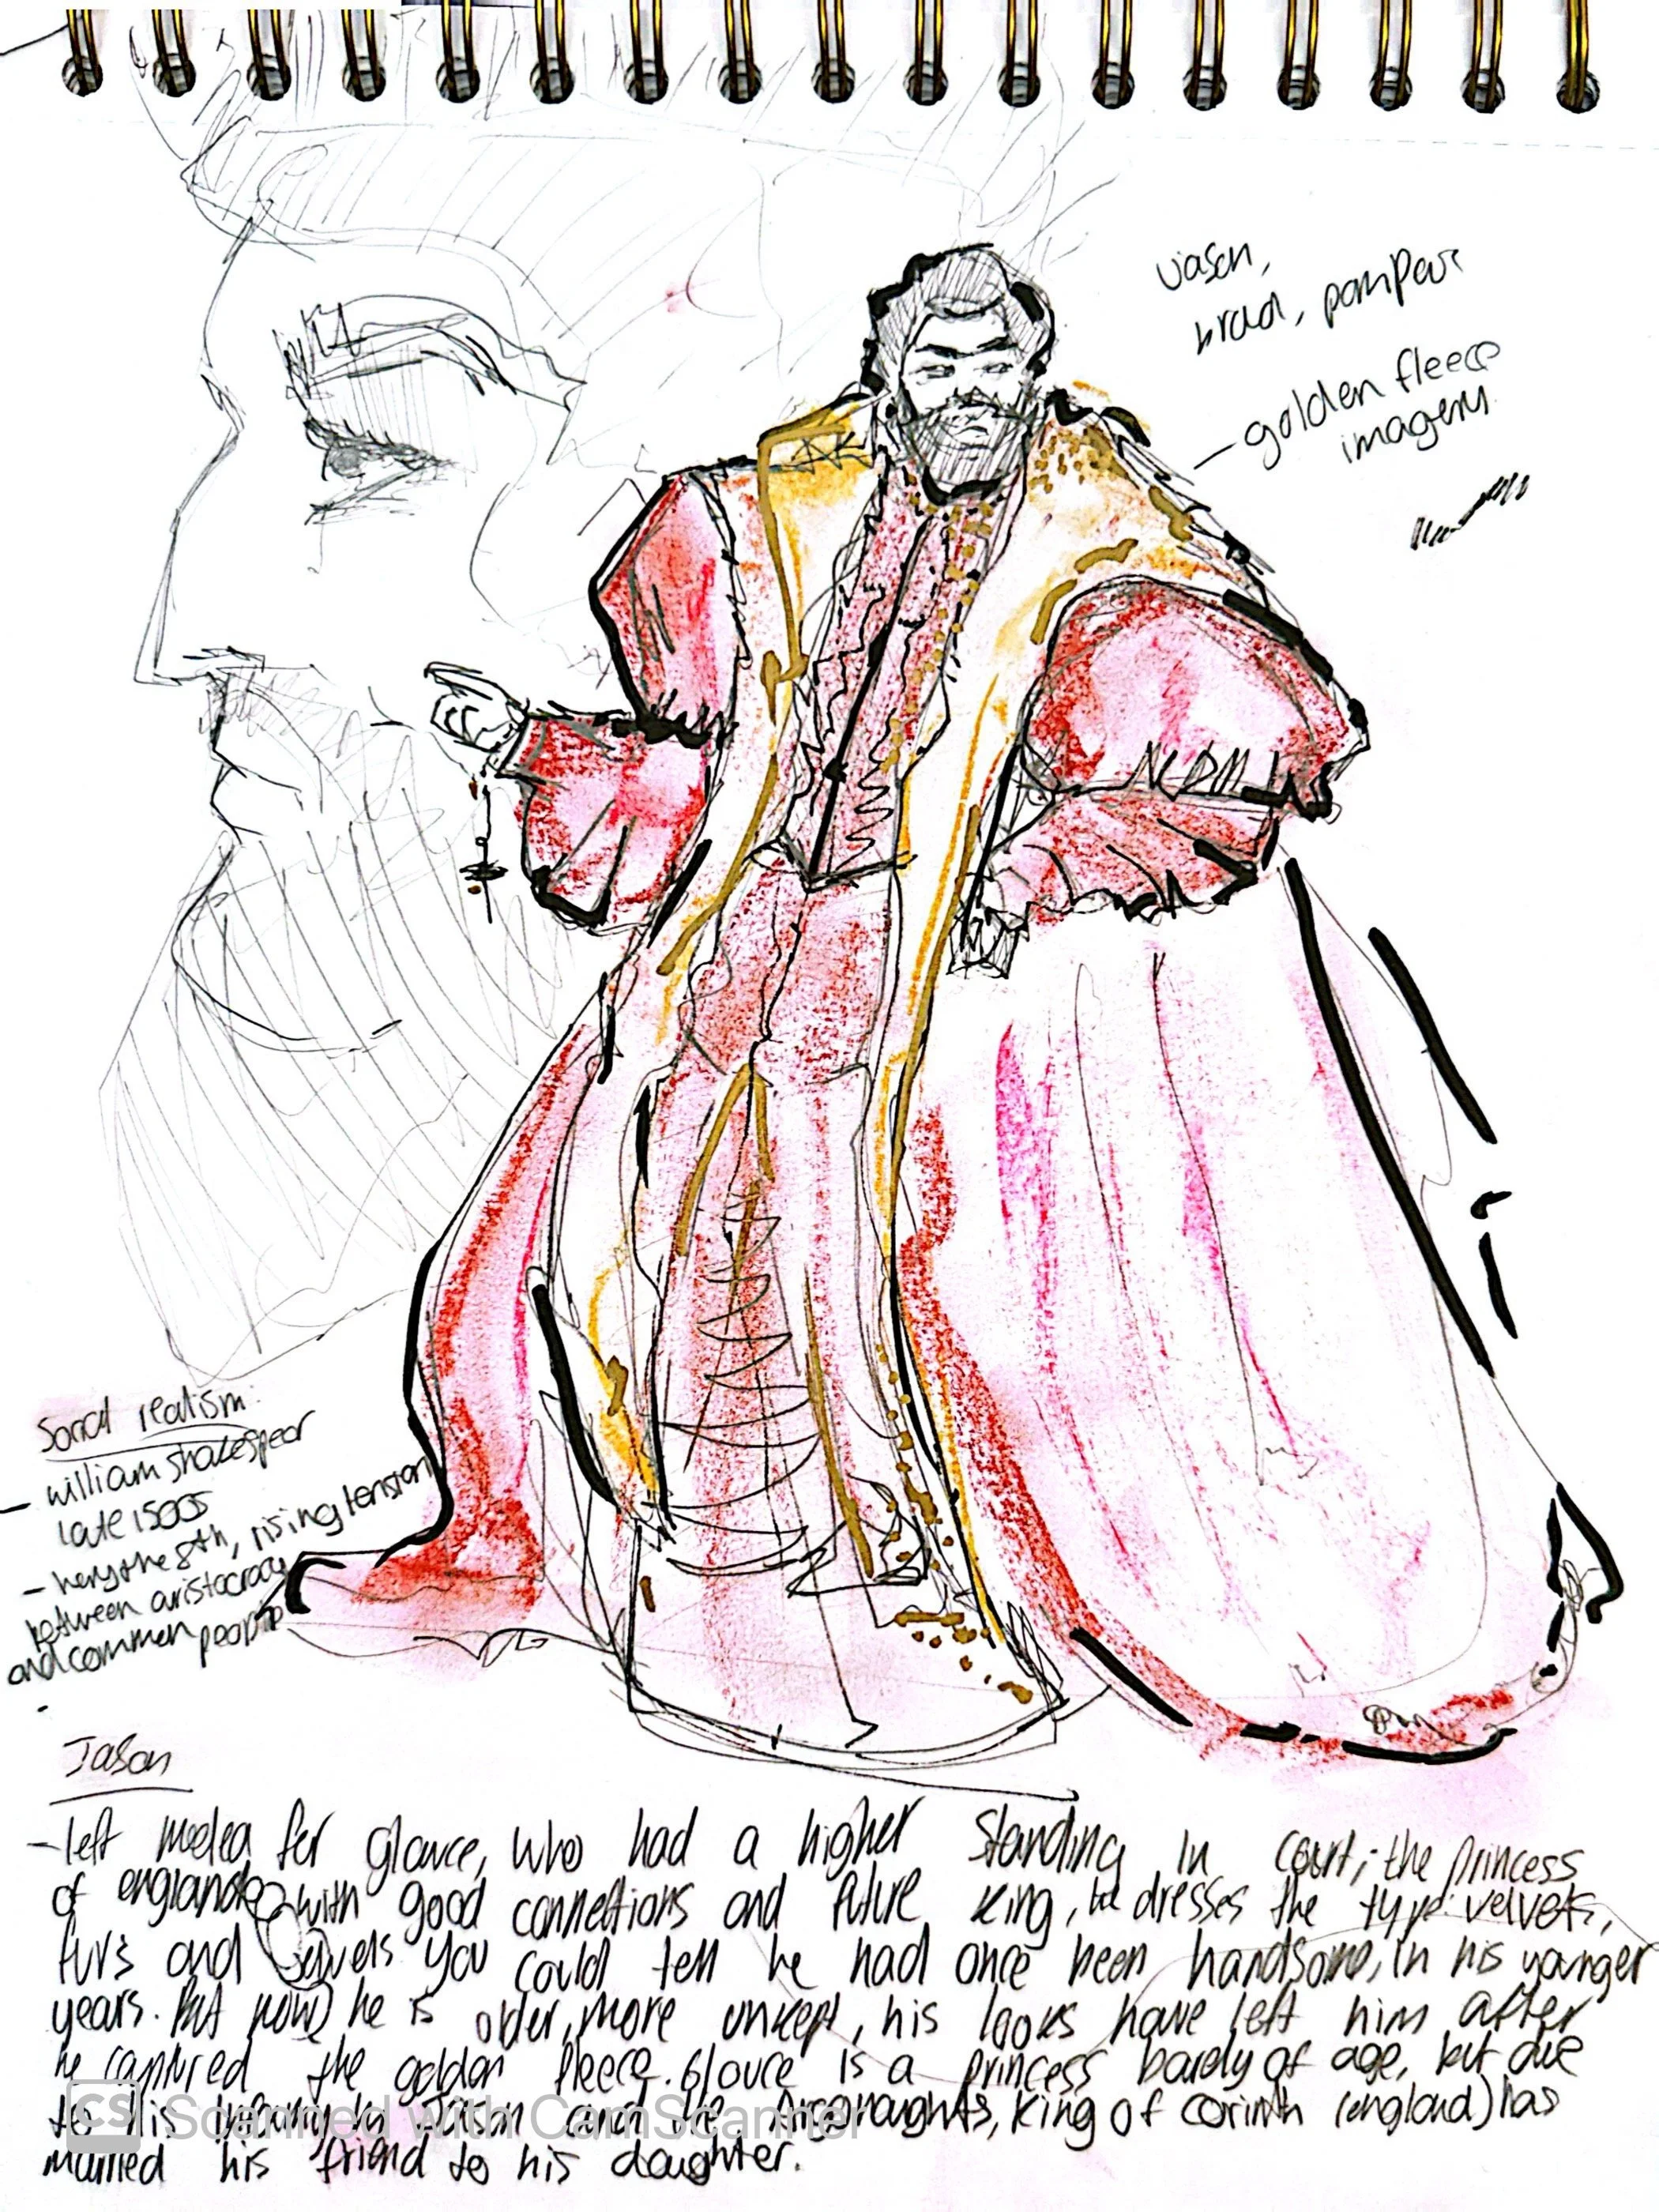 Jason,
broad, pompeus
- golden fleece
imagery
Social realism:
- william shakespear
late 1500s
- henry the 8th, rising tension
between aristocracy
and common people
-
Jason
- left medea for glauce, who had a higher standing in court; the princess
of england with good connections and future king, he dresses the type: velvets,
furs and jewels you could tell he had once been handsome, in his younger
years. But now he is older, more unkept, his looks have left him after
he captured the golden fleece. Glauce is a princess barely of age, but due
to his infamy Jason and the Argonaughts, King of Corinth (england) has
married his friend to his daughter.
CS Scanned with CamScanner